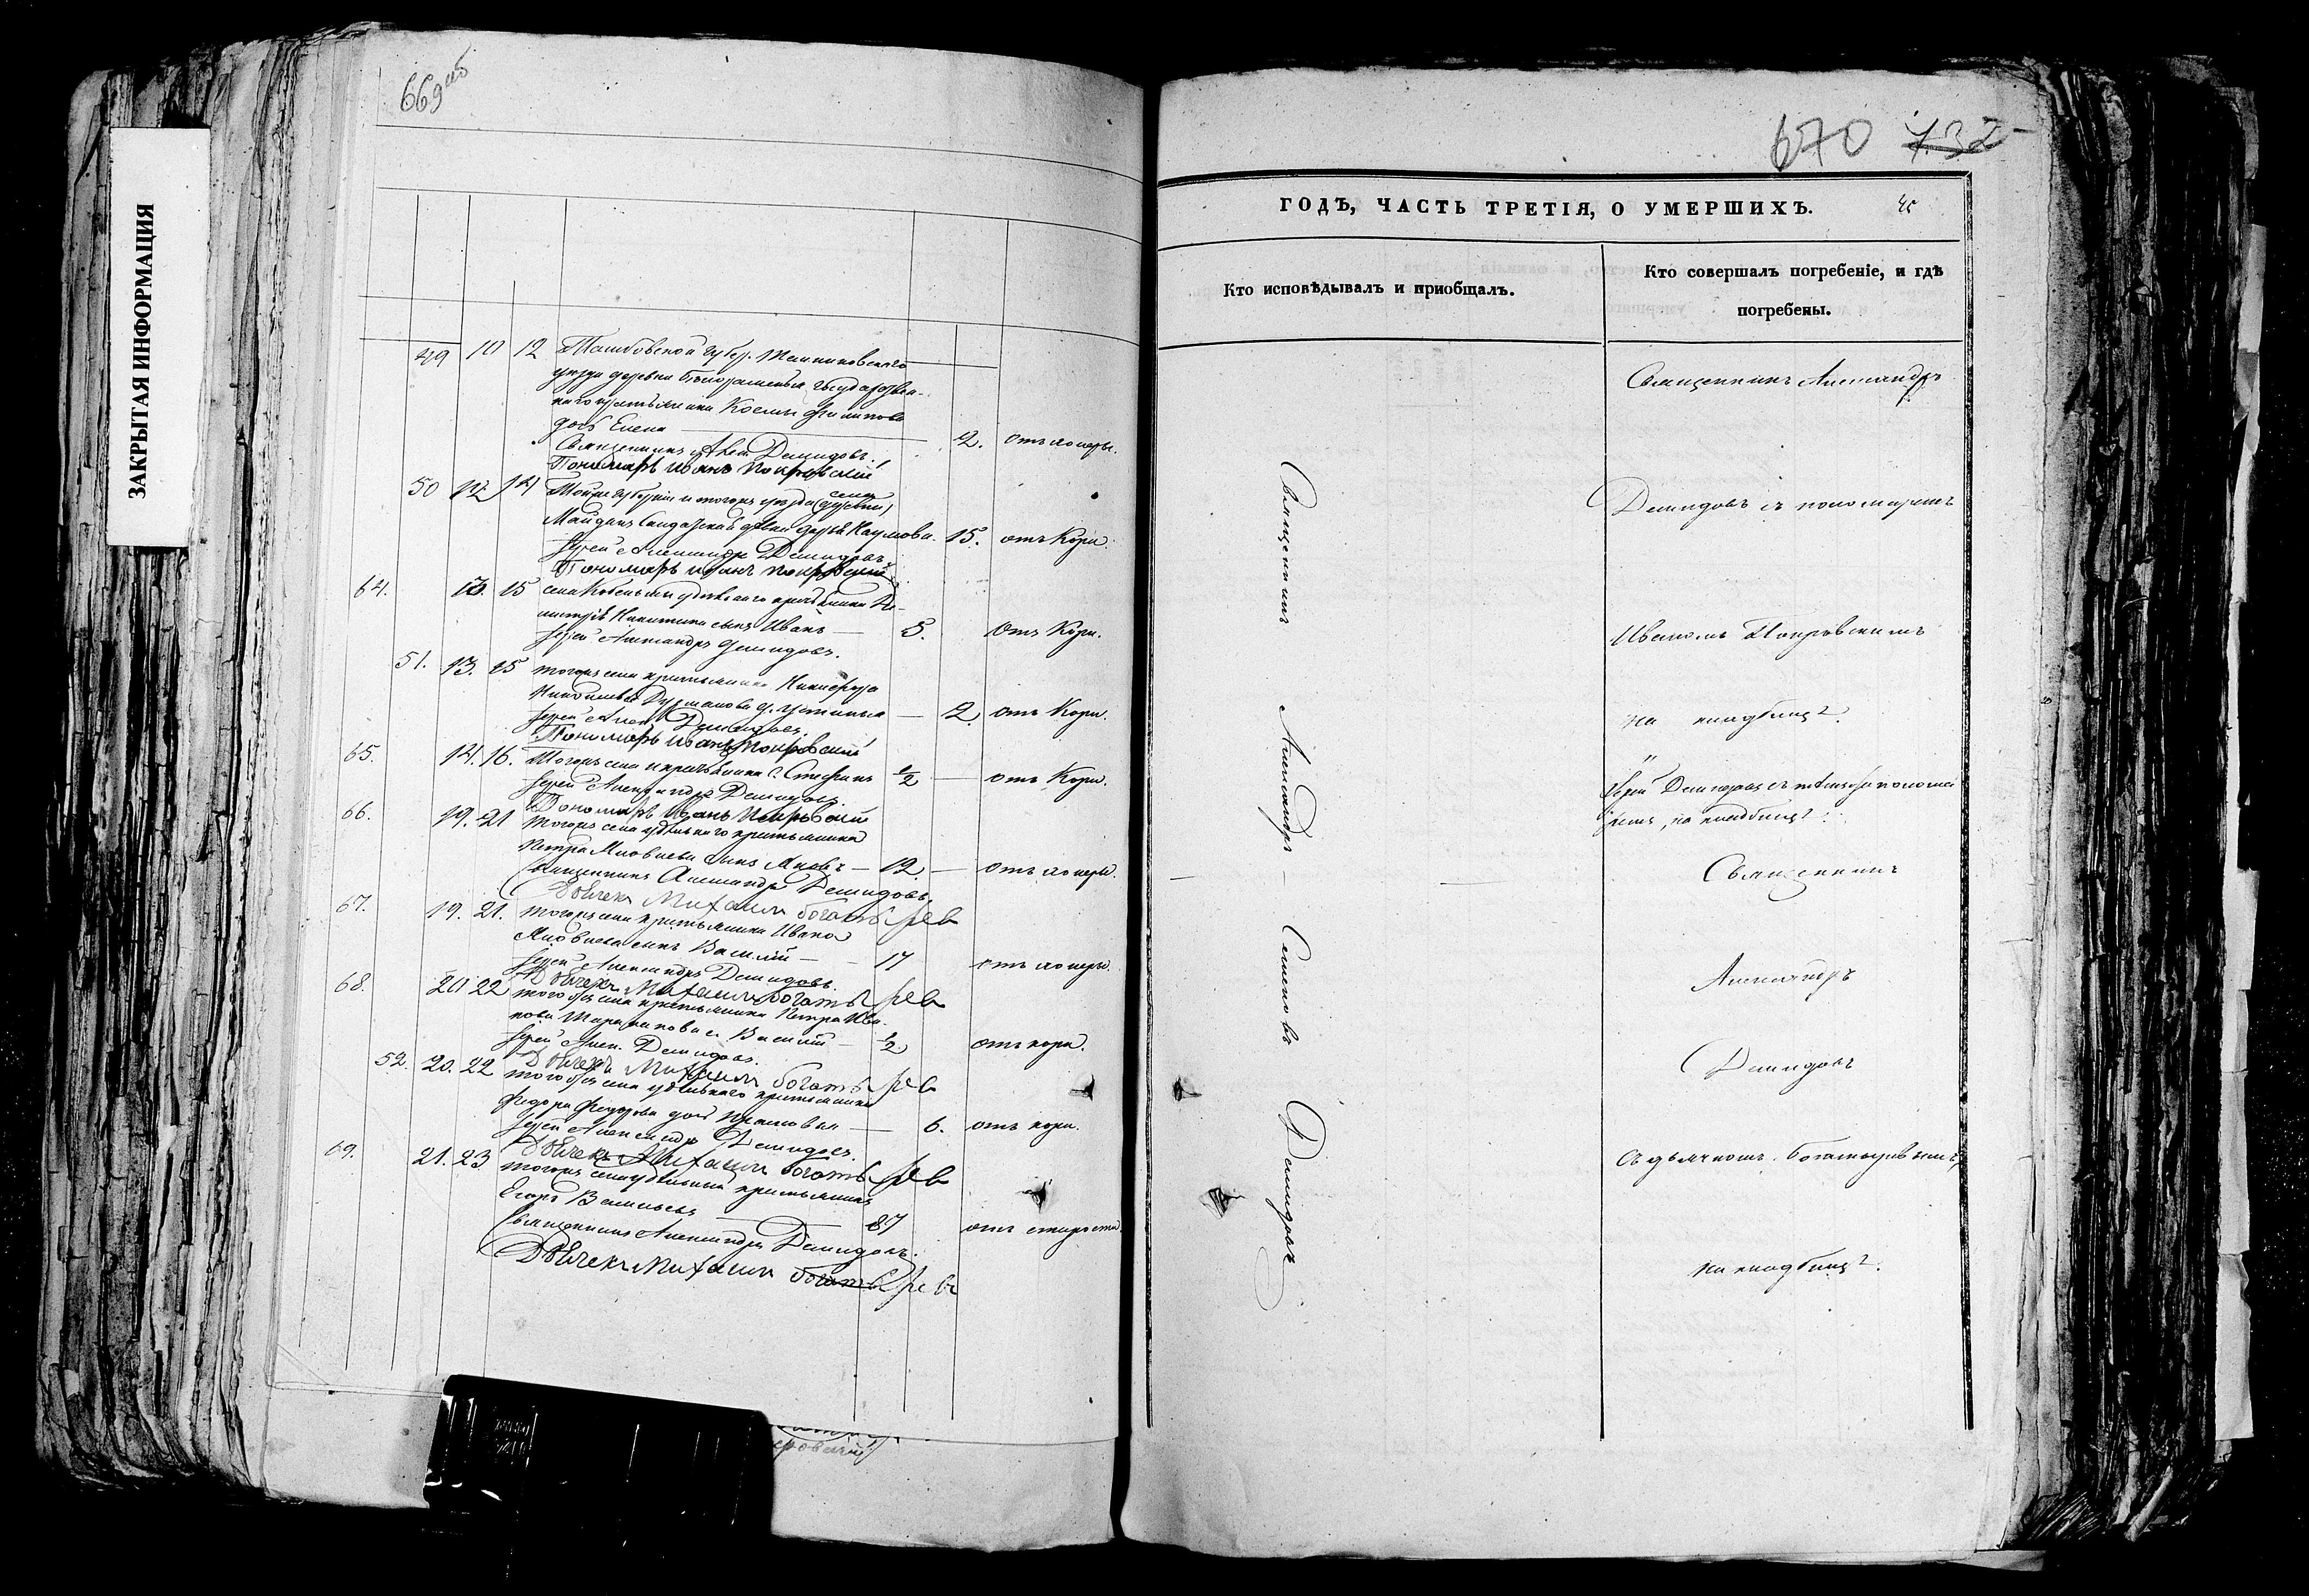 ЗАКРЫТАЯ ИНФОРМАЦИЯ
669 об
49 10 12 Тамбовской губер. Темниковскаго
уезда деревни государствен-
наго крестьянина Косьмы Филипова
дочь Елена 2. отъ холеры.
Священникъ Алек. Демидовъ.
Пономарь Иванъ Покровский
50 12 14 Тойже губернии и тогожъ уезда (деревни) села
Майданъ девка Дарья Наумова 15. отъ кори.
Иерей Александръ Демидовъ.
Пономарь Иванъ Покровский
64. 13. 15 села удельнаго крестьянина Ди-
митрия Никитина сынъ Иванъ 5. отъ кори.
Иерей Александръ Демидовъ.
51. 13. 15 тогожъ села крестьянина Никифора
д. Устинья 2 отъ кори.
Иерей Алек. Демидовъ.
Пономарь Иванъ Покровский
65. 14. 16. Тогожъ села крестьянина с. Стефанъ 1/2 отъ кори.
Иерей Александръ Демидовъ.
Пономарь Иванъ Покровский
66. 19. 21 тогожъ села удельнаго крестьянина
Петра Яковлева сынъ Яковъ 12. отъ холеры.
Священникъ Александръ Демидовъ.
Дьячекъ Михаилъ Богатыревъ
67. 19. 21. тогожъ села крестьянина Ивана
Яковлева сынъ Василий 17 отъ холеры.
Иерей Александръ Демидовъ.
Дьячекъ Михаилъ Богатыревъ
68. 20 22 тогожъ села крестьянина Петра Ива-
нова с. Василий 1/2 отъ кори.
Иерей Алек. Демидовъ.
Дьячекъ Михаилъ Богатыревъ
52. 20. 22 тогожъ села удельнаго крестьянина
Федора Федорова дочь 6. отъ кори.
Иерей Александръ Демидовъ.
Дьячекъ Михаилъ Богатыревъ
69. 21. 23 тогожъ села удельный крестьянинъ
Егоръ Васильевъ 87 отъ старости.
Священникъ Александръ Демидовъ.
Дьячекъ Михаилъ Богатыревъ
670 732
ГОДЪ, ЧАСТЬ ТРЕТІЯ, О УМЕРШИХЪ.
Кто исповѣдывалъ и пріобщалъ.
Кто совершалъ погребеніе, и гдѣ
погребены.
Священникъ Александръ Семеновъ Демидовъ
Священникъ Александръ
Демидовъ съ пономаремъ
Иваномъ Покровскимъ
на кладбищѣ.
Иерей Демидовъ съ пономаремъ
на кладбищѣ.
Священникъ
Александръ
Демидовъ
съ дьячкомъ Богатыревымъ,
на кладбищѣ.